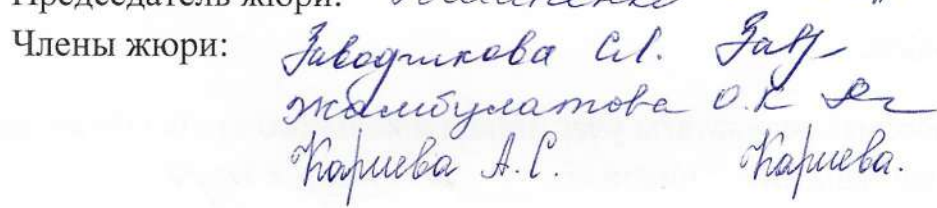 Председатель жюри:
Члены жюри: Заводчикова С.А. Зав
Жамбулатова О.К
Кариева А.С. Кариева.